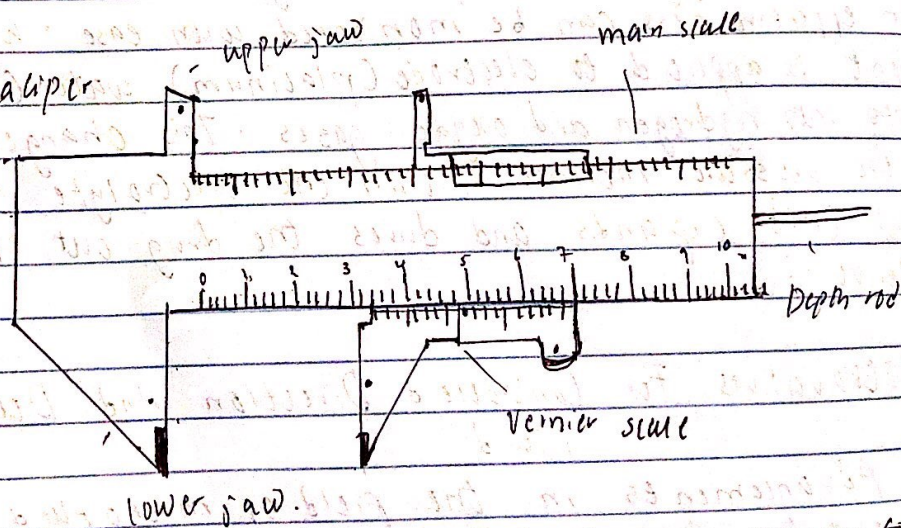 aliper
upper jaw
main scale
0 1 2 3 4 5 6 7 8 9 10
Depth rod
Vernier scale
lower jaw.